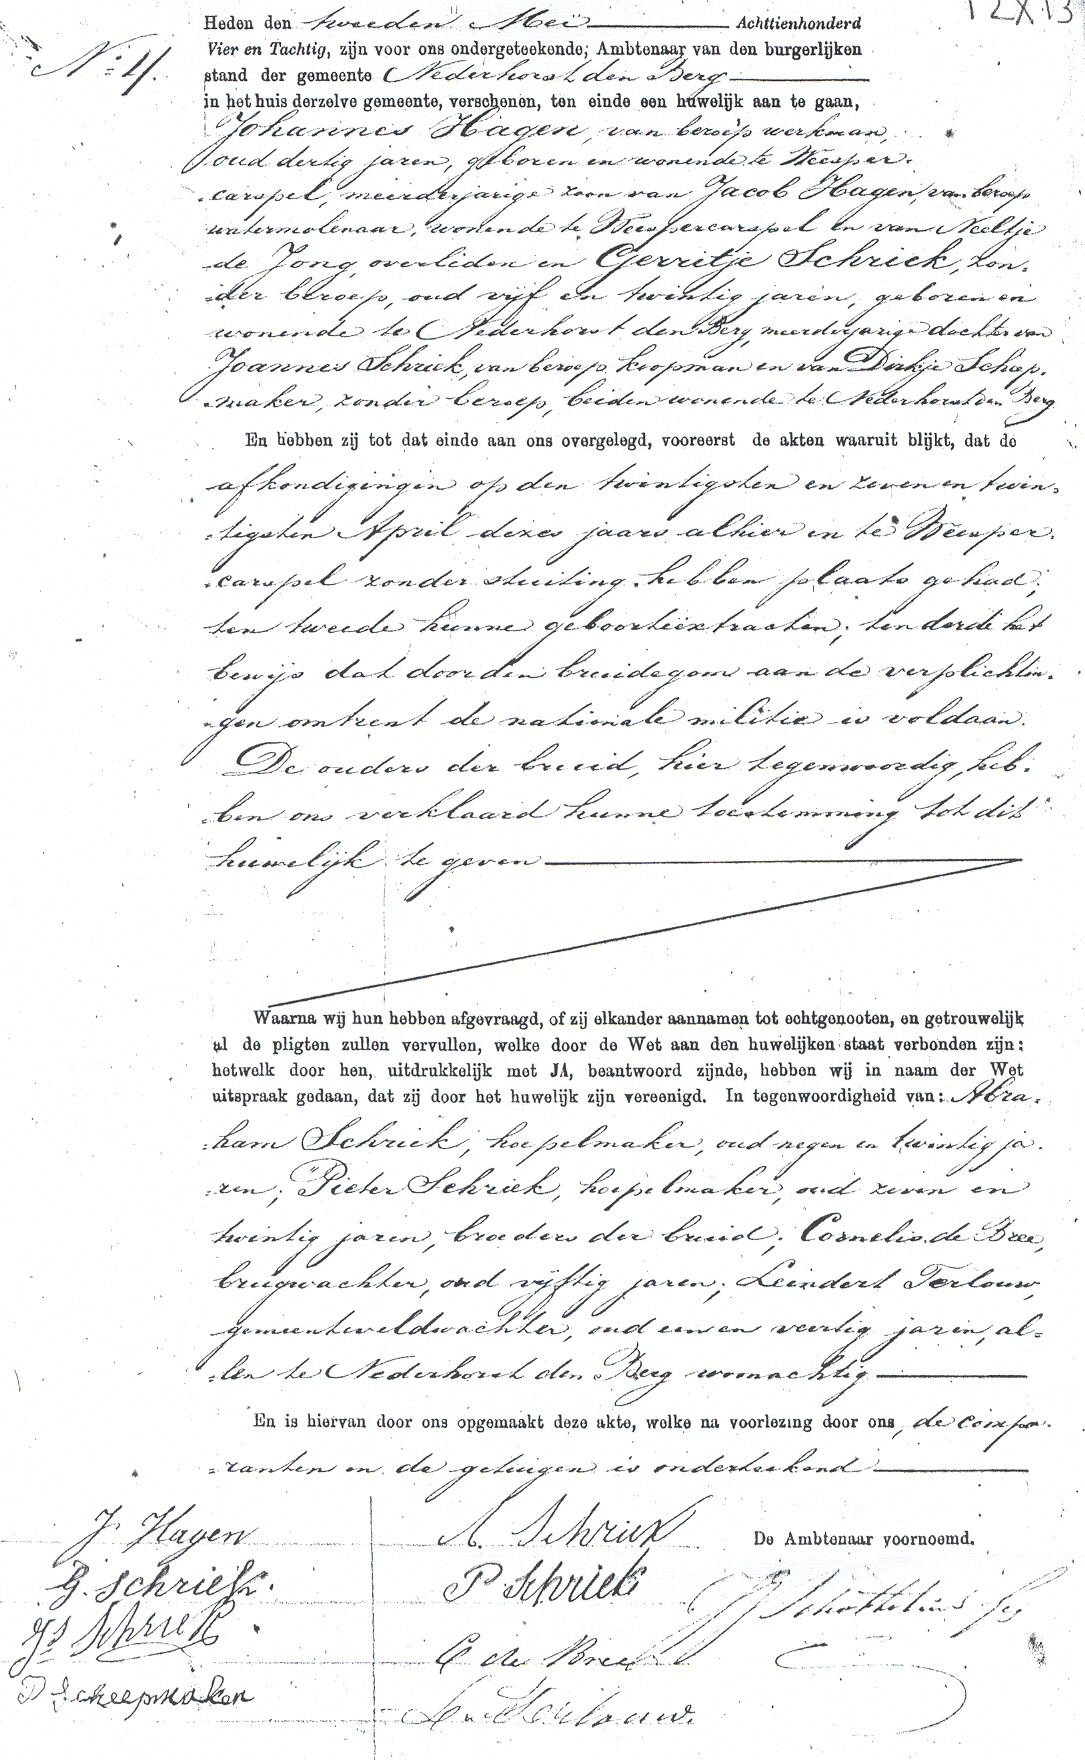 12 X 13
Heden den tweeden Mei Achttienhonderd
Vier en Tachtig, zijn voor ons ondergeteekende, Ambtenaar van den burgerlijken
No: 4.
stand der gemeente Nederhorst den Berg
in het huis derzelve gemeente, verschenen, ten einde een huwelijk aan te gaan,
Johannes Hagen, van beroep werkman,
oud dertig jaren, geboren en wonende te Weesper-
carspel, meerderjarige zoon van Jacob Hagen, van beroep
watermolenaar, wonende te Weespercarspel en van Neeltje
de Jong, overleden en Gerritje Schriek, zon-
der beroep, oud vijf en twintig jaren, geboren en
wonende te Nederhorst den Berg, meerderjarige dochter van
Joannes Schriek, van beroep koopman en van Dirkje Scheep-
maker, zonder beroep, beiden wonende te Nederhorst den Berg
En hebben zij tot dat einde aan ons overgelegd, vooreerst de akten waaruit blijkt, dat de
afkondigingen op den twintigsten en zeven en twin-
tigsten April dezes jaars alhier en te Weesper-
carspel zonder stuiting hebben plaats gehad;
ten tweede hunne geboorteextracten; ten derde het
bewijs dat door den bruidegom aan de verplichtin-
gen omtrent de nationale militie is voldaan.
De ouders der bruid, hier tegenwoordig, heb-
ben ons verklaard hunne toestemming tot dit
huwelijk te geven
Waarna wij hun hebben afgevraagd, of zij elkander aannamen tot echtgenooten, en getrouwelijk
al de pligten zullen vervullen, welke door de Wet aan den huwelijken staat verbonden zijn:
hetwelk door hen, uitdrukkelijk met JA, beantwoord zijnde, hebben wij in naam der Wet
uitspraak gedaan, dat zij door het huwelijk zijn vereenigd. In tegenwoordigheid van: Abra-
ham Schriek, hoepelmaker, oud negen en twintig ja-
ren; Pieter Schriek, hoepelmaker, oud zeven en
twintig jaren, broeders der bruid; Cornelis de Bree,
brugwachter, oud vijftig jaren; Leindert Terlouw,
gemeenteveldwachter, oud een en veertig jaren, al-
len te Nederhorst den Berg woonachtig
En is hiervan door ons opgemaakt deze akte, welke na voorlezing door ons, de compa-
ranten en de getuigen is onderteekend
J. Hagen
A. Schriek
De Ambtenaar voornoemd.
G. Schriek.
P Schriek
Schottelius
Js Schriek
C de Bree
D Scheepmaker
L. Terlouw.